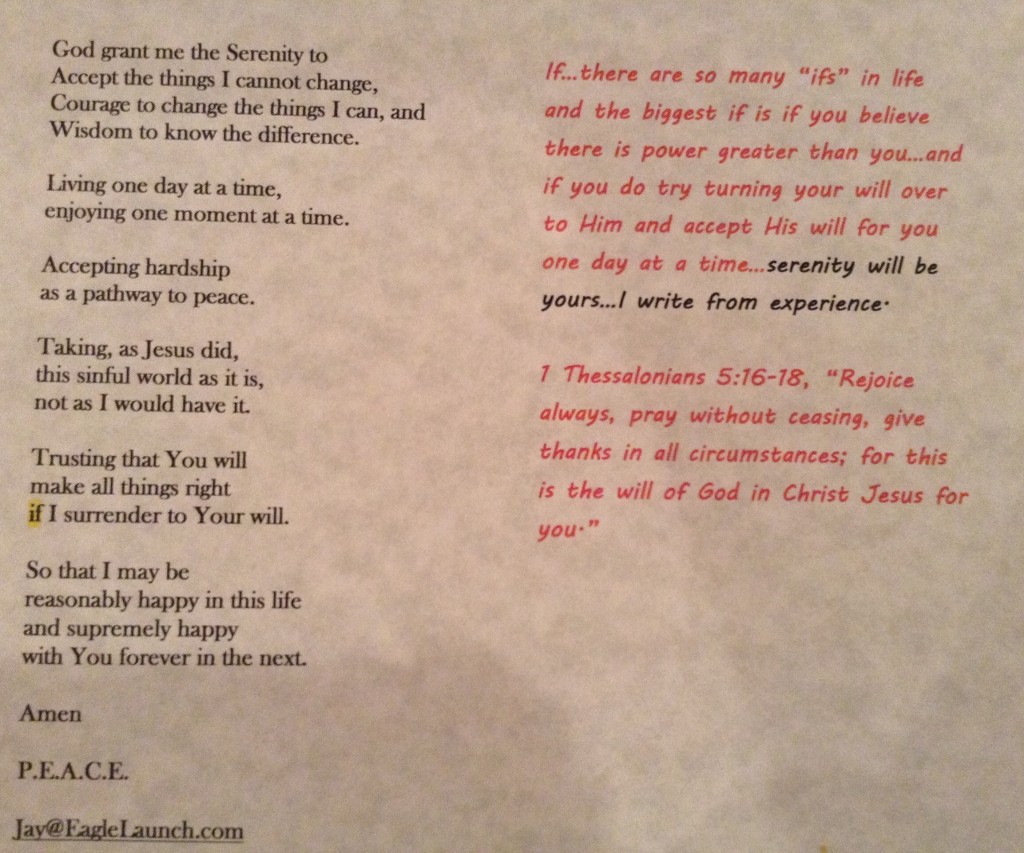 God grant me the Serenity to
Accept the things I cannot change,
Courage to change the things I can, and
Wisdom to know the difference.
Living one day at a time,
enjoying one moment at a time.
Accepting hardship
as a pathway to peace.
Taking, as Jesus did,
this sinful world as it is,
not as I would have it.
Trusting that You will
make all things right
if I surrender to Your will.
So that I may be
reasonably happy in this life
and supremely happy
with You forever in the next.
Amen
P.E.A.C.E.
Jay@EagleLaunch.com
If...there are so many “ifs” in life
and the biggest if is if you believe
there is power greater than you...and
if you do try turning your will over
to Him and accept His will for you
one day at a time...serenity will be
yours...I write from experience.
1 Thessalonians 5:16-18, “Rejoice
always, pray without ceasing, give
thanks in all circumstances; for this
is the will of God in Christ Jesus for
you.”